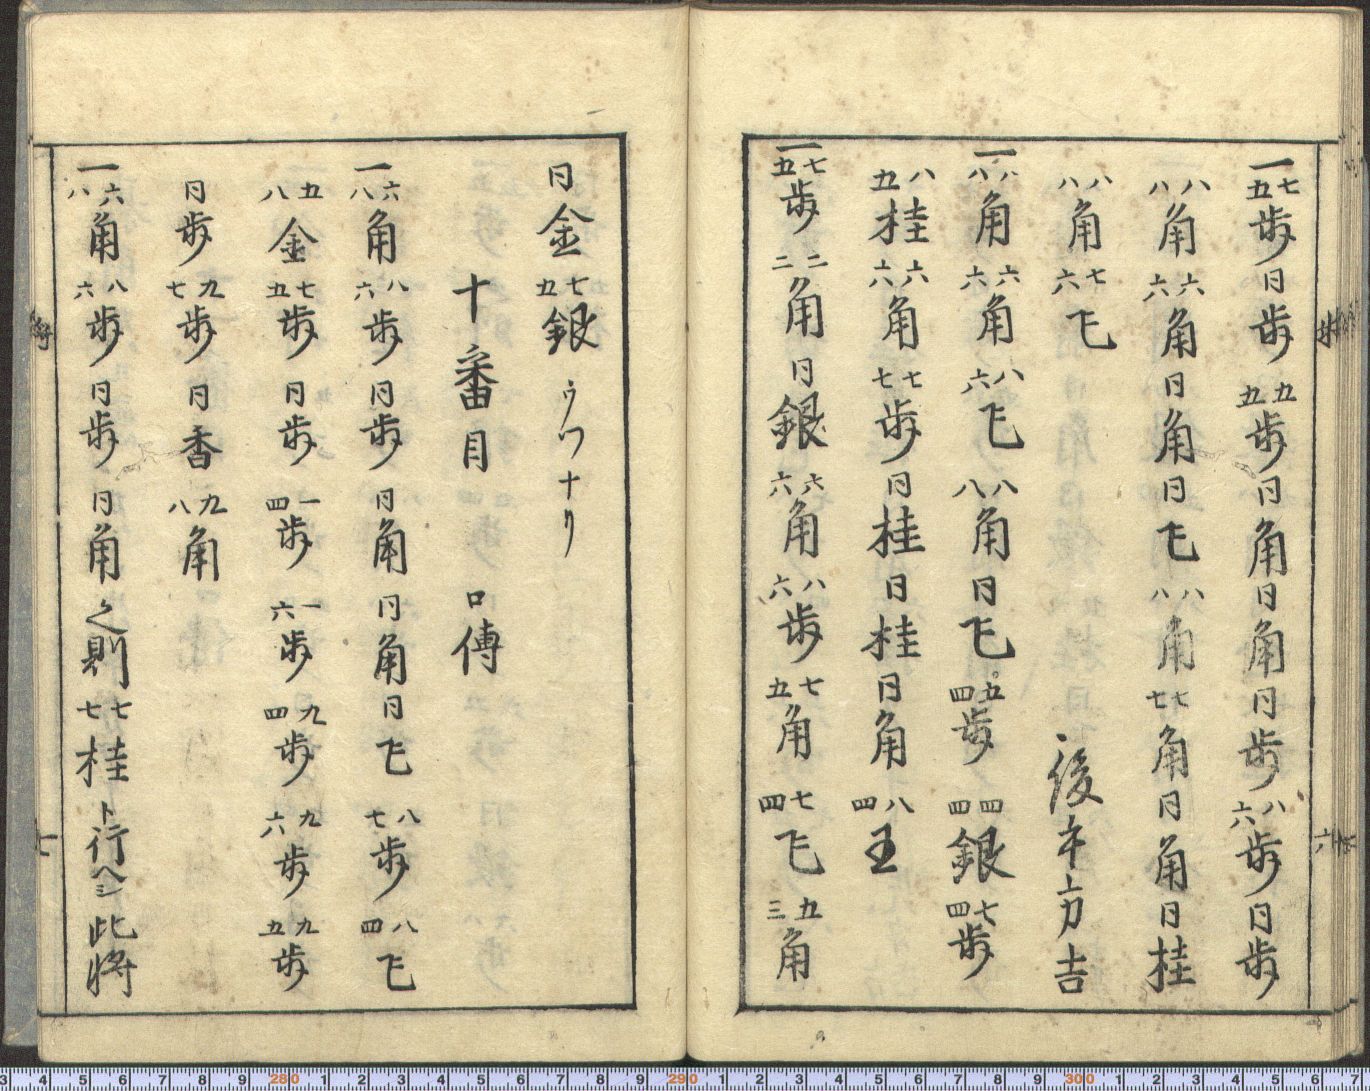 一七五歩同歩九五歩同角同角同歩八六歩同歩
八八角六六角同角同飞八八角七七角同角同桂
八八角七六飞 後手方吉
一八八角六六角八六飞八八角同飞五四歩四四銀七四歩
八五桂六六角七七歩同桂同桂同角八四王
一七五歩二二角同銀六六角八六歩七五角七四飞五三角
同金七五銀ウツナリ
十番目 口傳
一六八角八六歩同歩同角同角同飞八七歩八四飞
五八金七五歩同歩一四歩一六歩九四歩九六歩九五歩
同歩九七歩同香九八角
一六八角八六歩同歩同角之則七七桂ト行ヘシ此将